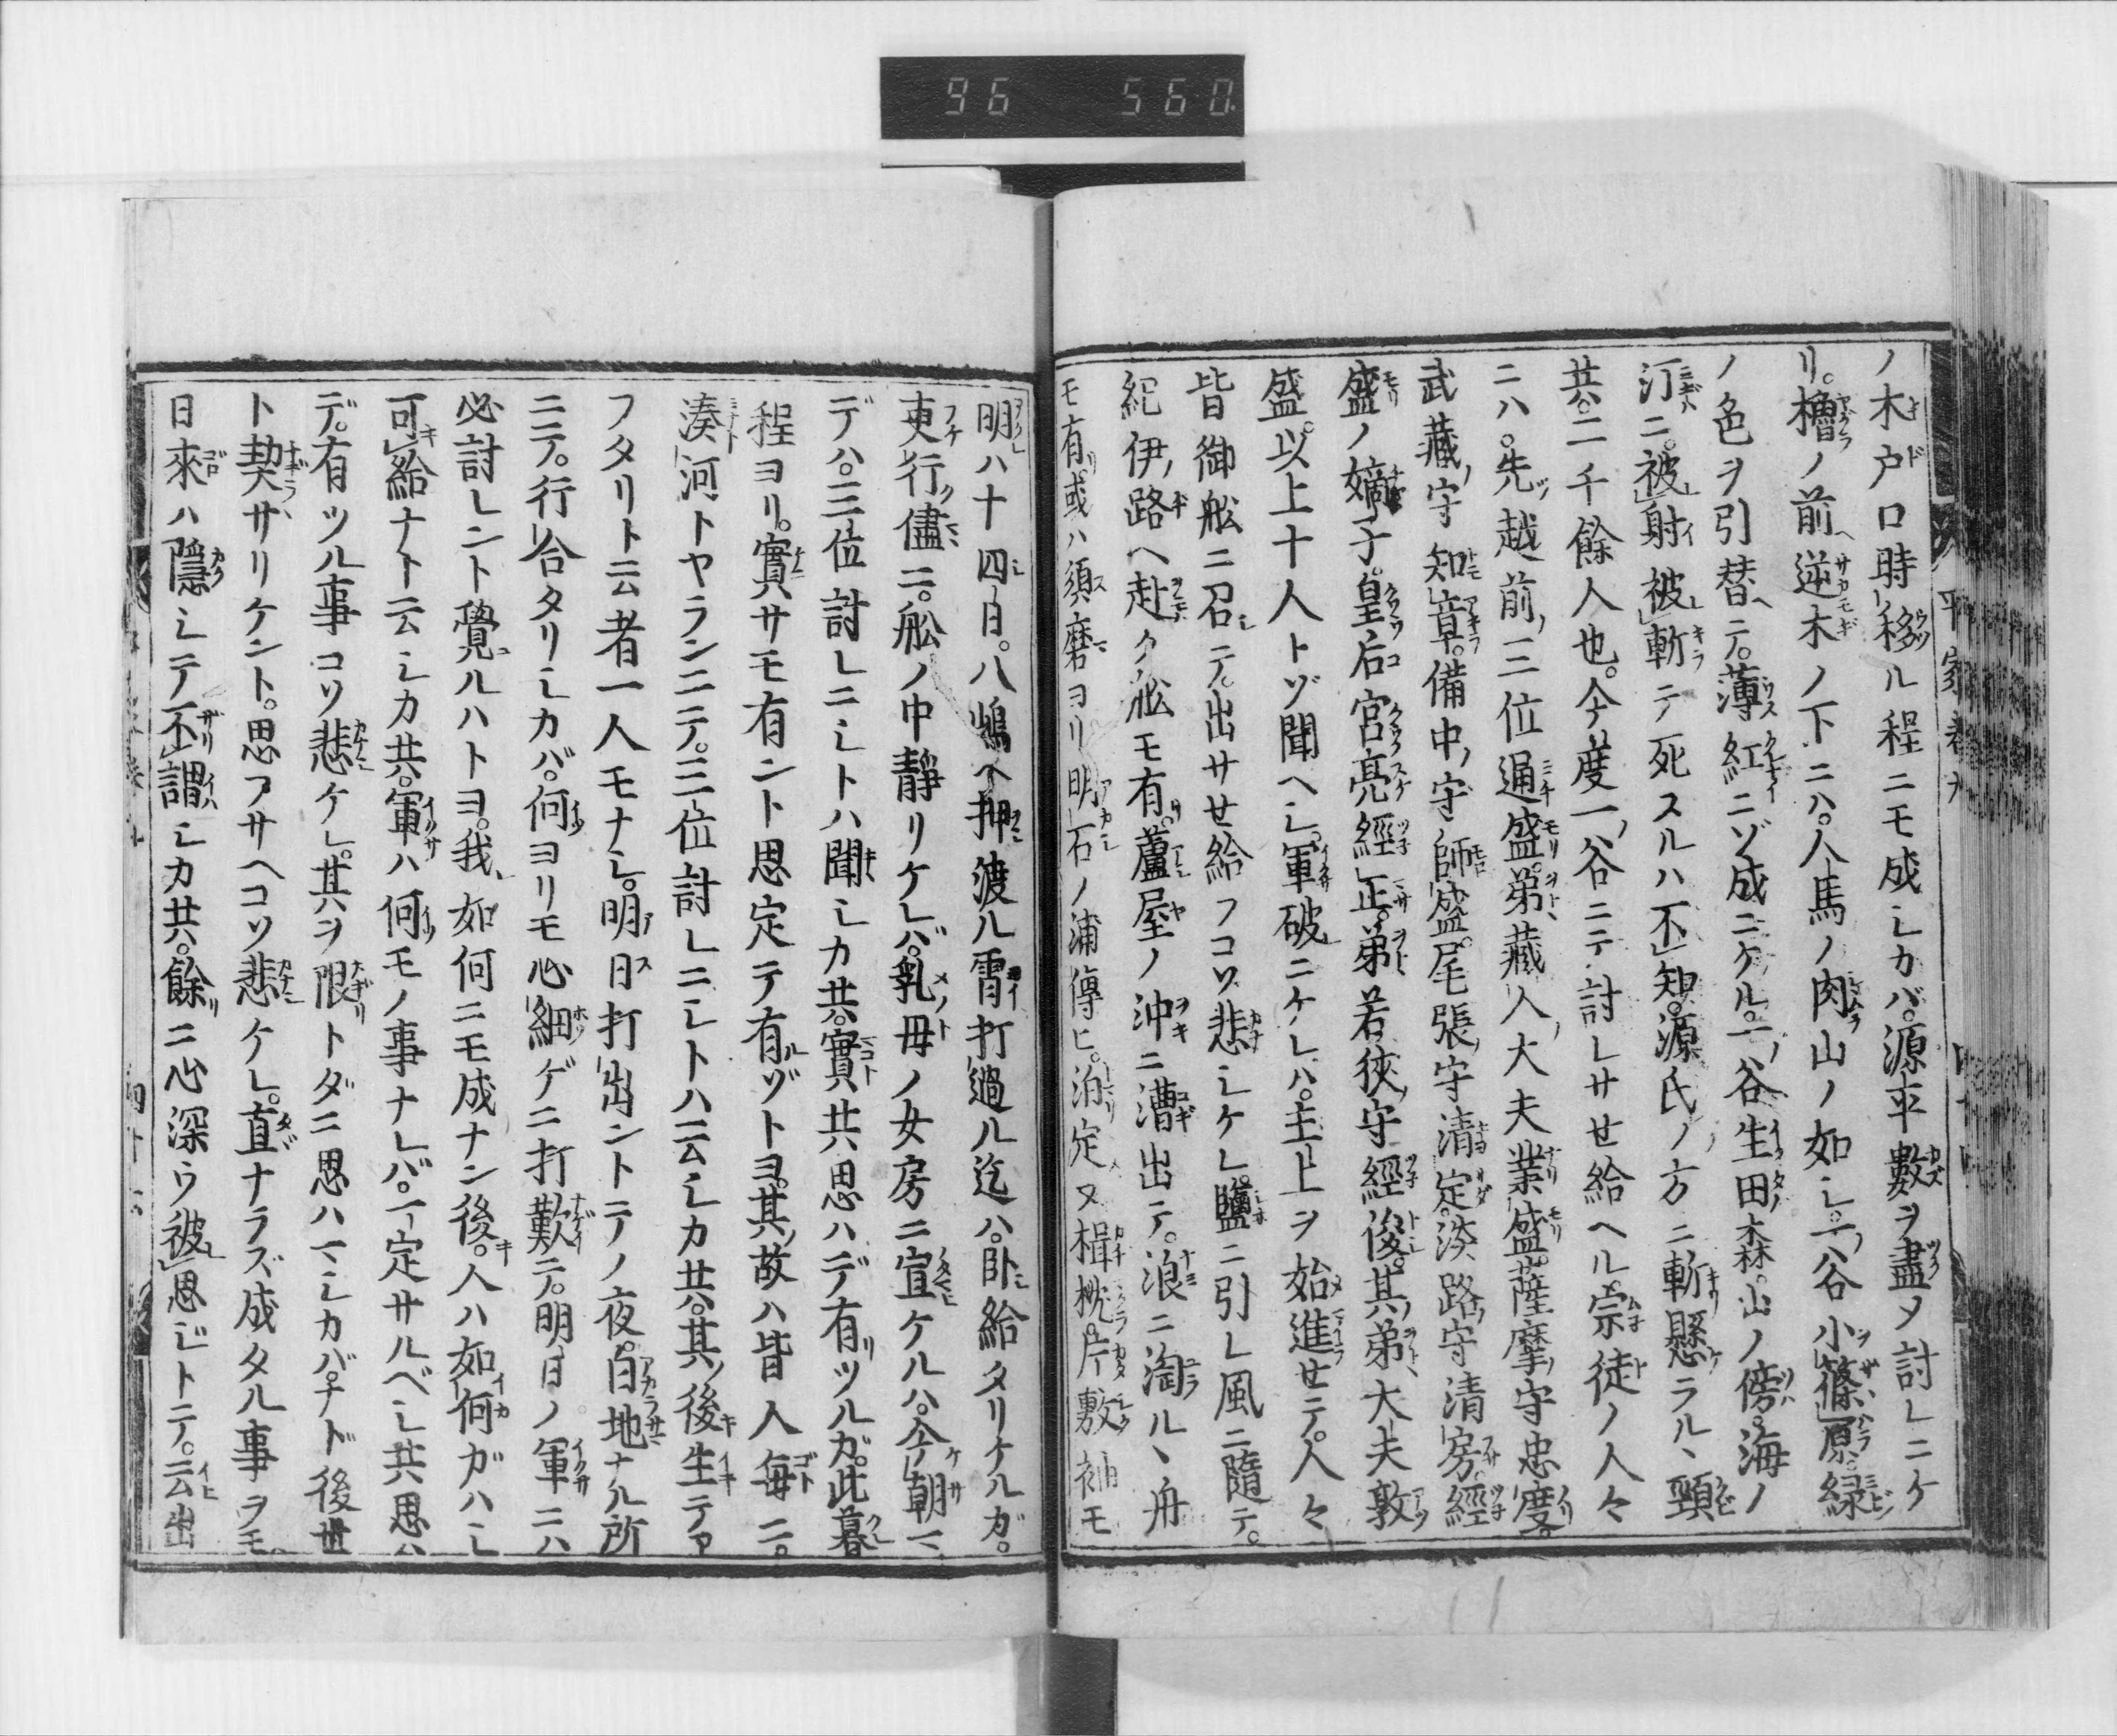 96 560
平家巻九
ノ木戸口時移ル程ニモ成シカバ。源平數ヲ盡メ討レニケ
リ。櫓ノ前逆木ノ下ニハ。人馬ノ肉山ノ如シ。一谷小篠原。緑
ノ色ヲ引替ヘテ。薄紅ニゾ成ニケル。一谷生田森。山ノ傍。海ノ
汀ニ。被射被斬テ死スルハ不知。源氏ノ方ニ斬懸ラルヽ頸
共。二千餘人也。今度一谷ニテ討レサセ給ヘル。宗徒ノ人々
ニハ。先越前三位通盛。弟藏人大夫業盛。薩摩守忠度。
武藏守知章。備中守師盛。尾張守清定。淡路守清房。經
盛ノ嫡子。皇后宮亮經正。弟若狹守經俊。其弟大夫敦
盛。以上十人トゾ聞ヘシ。軍破ニケレハ。主上ヲ始進セテ。人々
皆御舩ニ召テ。出サセ給フコソ悲シケレ。鹽ニ引レ風ニ隨テ。
紀伊路ヘ赴ク舩モ有。蘆屋ノ沖ニ漕出テ。浪ニ淘ルヽ舟
モ有。或ハ須磨ヨリ明石ノ浦傳ヒ。泊定ヌ楫枕。片敷袖モ
明ハ十四日。八嶋ヘ押渡ル宵打過ル迄ハ。臥給タリケルガ。
更行儘ニ。舩ノ中靜リケレバ。乳母ノ女房ニ宣ケルハ。今朝マ
デハ。三位討レニシトハ聞シカ共。實共思ハデ有ツルガ。此暮
程ヨリ。實サモ有ント思定テ有ゾトヨ。其故ハ皆人毎ニ。
湊河トヤランニテ。三位討レニシトハ云シカ共。其後生テア
フタリト云者一人モナシ。明日打出ントテノ夜。白地ナル所
ニテ。行合タリシカバ。何ヨリモ心細ゲニ打歎テ。明日ノ軍ニハ
必討レントト覺ルハトヨ。我如何ニモ成ナン後。人ハ如何ガハシ
可給ナト云シカ共。軍ハ何モノ事ナレバ。一定サルベシ共思ハ
デ。有ツル事コソ悲ケレ。其ヲ限トダニ思ハマシカバ。ナド後世
ト契ザリケント。思フサヘコソ悲ケレ。直ナラズ成タル事ヲモ。
日來ハ隱シテ不謂シカ共。餘ニ心深ウ被思ジトテ。云出